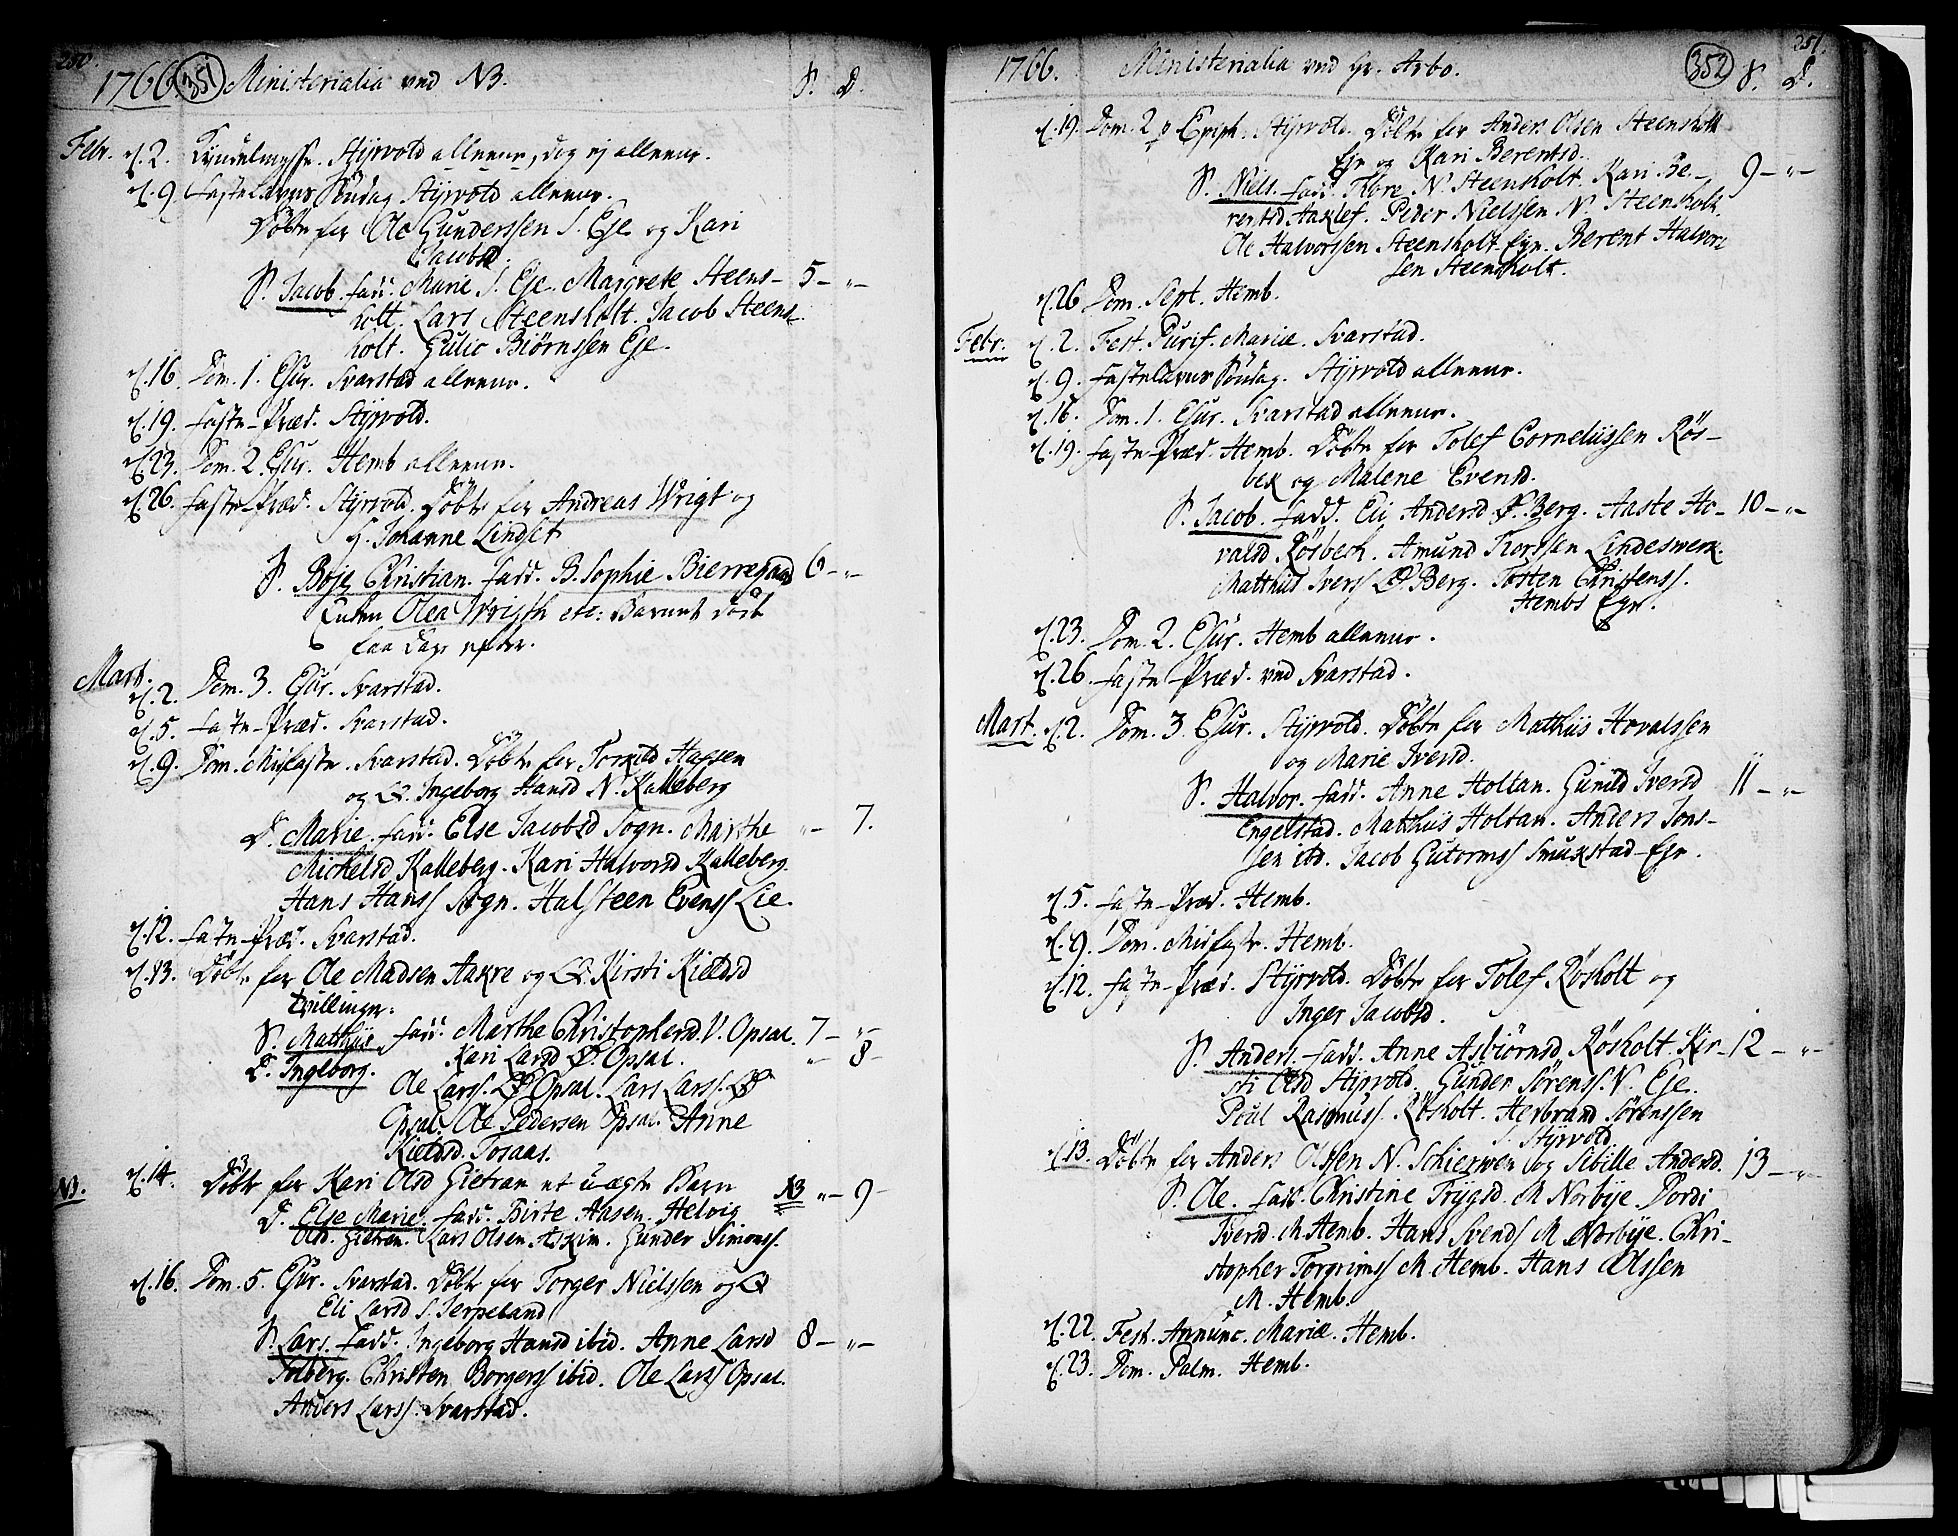 250.
1766 351 Ministerialia ved NB. S. D.
Febr. d. 2. Kyndelmisse. Styrvold allene, dog ej allene.
d. 9. Fastelavns Søndag Styrvold allene.
Døbte for Ole Gunderssen S. Eje og Kari
Jacobsd.
S. Jacob. fadd. Marie S. Eje. Margrete Steens- 5 - „-
holt. Lars Steensholt. Jacob Steens-
holt. Gulic Biørnssen Eje.
d. 16. Dom. 1. Esur. Svarstad allene.
d. 19. Faste-Præd. Styrvold.
d. 23. Dom. 2. Esur. Hemb allene.
d. 26. Faste-Præd. Styrvold. Døbte for Andreas Wrigt og
H. Johanne Lindset
S. Boje Christian. fadd. B. Sophie Bierregaard 6 - „-
Enken Olea Wrigth etc: Barnet døde
faa Dage efter.
Mart. d. 2. Dom. 3. Esur. Svarstad.
d. 5. Faste-Præd. Svarstad.
d. 9. Dom. Midfaste. Svarstad. Døbte for Torkild Hassen
og Q. Ingeborg Hansd N. Kalleberg
D. Marie. fadd. Else Jacobsd Sogn. Marthe „- 7.
Michelsd Kalleberg. Kari Halvorsd Kalleberg.
Hans Hanss Sogn. Halsteen Evenss Lie.
d. 12. Faste-Præd. Svarstad.
d. 13. Døbte for Ole Madsen Aakre og Q. Kirsti Kieldsd
Tvillinger:
S. Mathiis fadd. Marthe Christophersd. V. Opsal. 7 - „-
D. Ingeborg. Kari Larsd Ø. Opsal. „ 8 -
Ole Larss. Ø Opsal. Lars Larss. Ø
Opsal. Ole Pedersen Opsal. Anne
Kieldsd. Tosaas.
NB. d. 14. Døbte for Kari Olsd Gietran et uægte Barn NB „- 9 -
D. Else Marie. fadd. Birte Aasen. Helvig
Olsd. Gietran. Lars Olsen Askim. Gunder Simonss.
d. 16. Dom. 5. Esur. Svarstad. Døbte for Torger Nielssen og Q
Eli Larsd S. Jerpeland
S. Lars. fadd. Ingeborg Hansd ibid. Anne Larsd 8 - „-
Folberg. Christen Borgerss ibid. Ole Larss Opsal.
Anders Larss. Svarstad.
251.
1766. Ministerialia ved Hr. Arbo. 352 S. D.
d. 19. Dom. 2 p Epiph. Styrvold. Døbte for Anders Olsen Steensholt
Eje og Kari Berentsd.
S. Niels. fadd. Thore N. Steenholt. Kari Be- 9 - „-
rentsd Aaklef. Peder Nielssen N. Steensholt.
Ole Halvorssen Steensholt-Eje. Berent Halvor-
sen Steensholt.
d. 26 Dom. Sept. Hemb.
Febr. d. 2. Fest. Purif. Mariæ. Svarstad.
d. 9. Fastelavns Søndag. Styrvold allene.
d. 16. Dom. 1. Esur. Svarstad allene.
d. 19. Faste-Præd. Hemb. Døbte for Tolef Corneliissen Røs-
bek og Malene Evensd.
S. Jacob. fadd. Eli Andersd Ø. Berg. Aaste Ho- 10 - „-
valsd Røsbech. Amund Torssen Lindeswerk.
Matthiis Iverss Ø Berg. Tosten Christenss.
Hembs Eje.
d. 23. Dom. 2. Esur. Hemb allene.
d. 26. Faste-Præd. ved Svarstad.
Mart. d. 2. Dom. 3 Esur. Styrvold. Døbte for Matthiis Hovalssen
og Marie Iversd.
S. Halvor. fadd. Anne Holtan. Gunild Iversd 11 - „-
Engelstad. Matthiis Holtan. Anders Jons-
sen itd. Jacob Gutormss Smukstad-Eje.
d. 5. Faste-Præd. Hemb.
d. 9. Dom. Midfaste. Hemb.
d. 12. Faste-Præd. Styrvold. Døbte for Tolef Røsholt og
Inger Jacobsd.
S. Anders. fadd. Anne Asbiørnsd Røsholt. Kir- 12 - „-
sti Olsd Styrvold. Gunder Sørenss. N. Eje.
Poul Rasmuss. Røsholt. Herbrand Sørenssen
S. Styrvold
d. 13. Døbte for Anders Olssen N. Schierven og Sibille Andersd. 13 - „-
S. Ole. fadd. Christine Trygsd. M Norbye. Dordi
Iversd. M Hemb. Hans Svends M Norbye. Chri-
stopher Torgrimss M. Hemb. Hans Olssen
M. Hemb.
d. 22. Fest. Annunc. Mariæ. Hemb.
d. 23. Dom. Palm. Hemb.